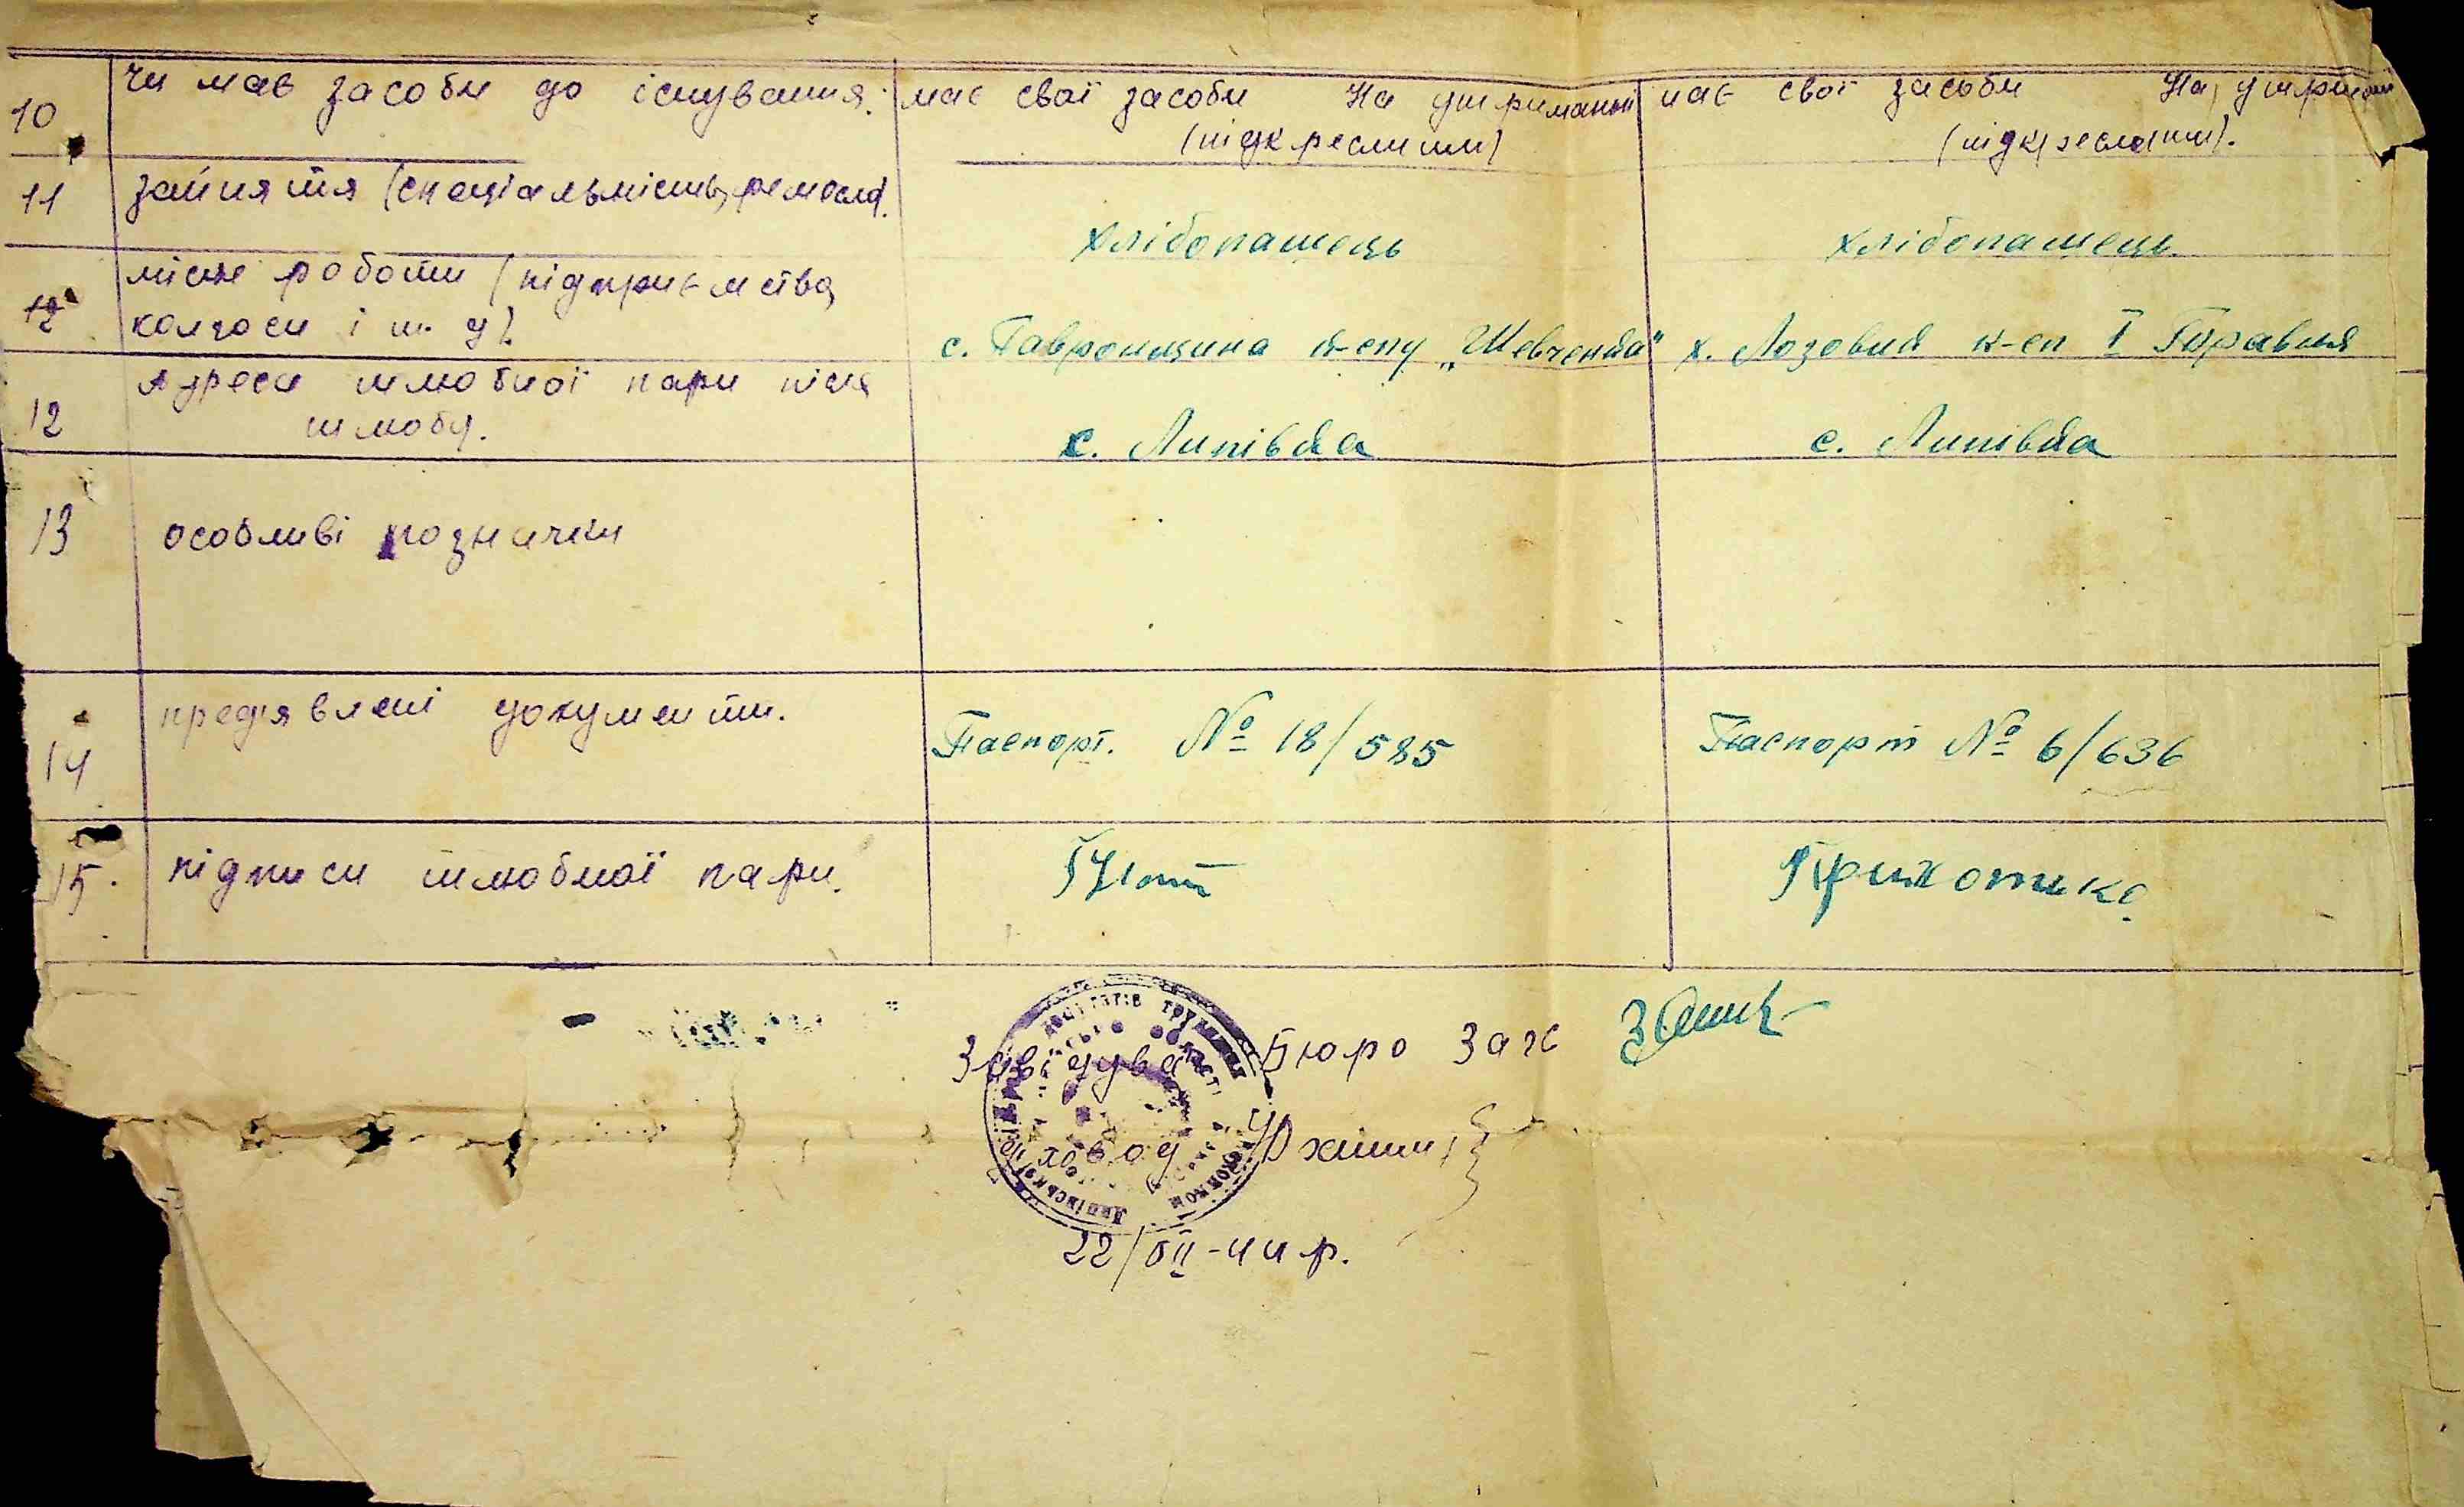 10 Чи має засоби до існування. має свої засоби На утриманні має свої засоби На утриман
(підкреслити) (підкреслити).
11 зайняття (спеціальність, ремесло).
хлібопашець хлібопашець
12ª місце роботи (підприємства,
колгосп і т. д). с. Гавронщина к-спу „Шевченка" х. Лозовий к-сп І Травня
12 Адреса шлюбної пари після
шлюбу. с. Липівка с. Липівка
13 особливі позначки
14 предявлені документи. Паспорт. № 18/585 Паспорт № 6/636
15. підписи шлюбної пари.
Завідував Бюро Загс
22/VII-44 р.